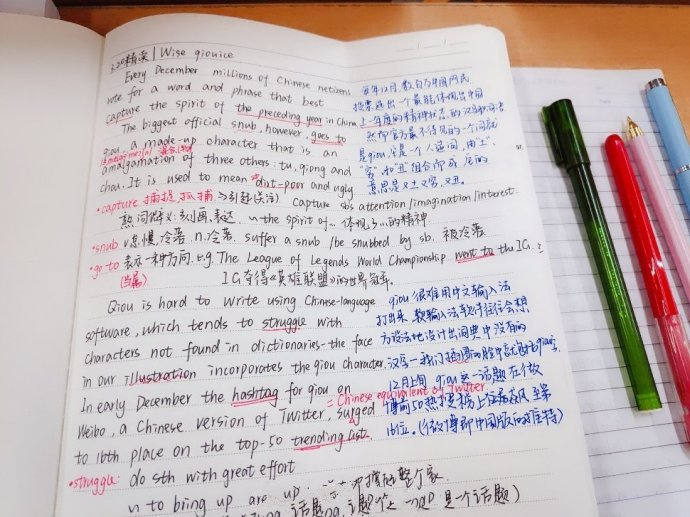 220精读 | Wise qiouice
Every December millions of Chinese netizens
vote for a word and phrase that best
capture the spirit of the preceding year in China
The biggest official snub, however, goes to
qiou, a made-up character that is an
amalgamation of three others: tu, qiong and
chou. It is used to mean dirt-poor and ugly
每年12月,数百万中国网民
投票选出一个最能体现出中国
上一年度的精神状态的汉字和词语
然而官方最不待见的一个词就
是qiou,这是一个人造词,由"土"、
"穷"和"丑"组合而成,它的
意思是又土又穷、又丑。
•capture 捕捉,抓捕 →引起(关注) capture sb's attention/imagination/interest
熟词僻义:刻画、表达. ~ the spirit of... 体现了...的精神
•snub v.怠慢,冷落. n.冷落. suffer a snub /be snubbed by sb. 被冷落
•go to 表示一种方向. e.g. The League of Legends World Championship went to the IG.
(归属) IG夺得《英雄联盟》的世界冠军.
Qiou is hard to write using Chinese-language
software, which tends to struggle with
characters not found in dictionaries-the face
in our illustration incorporates the qiou character.
In early December the hashtag for qiou on
= Chinese equivalent of Twitter
Weibo, a Chinese version of Twitter, surged
to 16th place on the top-50 trending list.
qiou很难用中文输入法
打出来,软输入法软件往往会想
方设法地设计出词典中没有的
汉字
12月上旬 qiou这一话题在微
博前50热搜榜上
16位。(微博即中国版的推特)
•struggle: do sth with great effort
~ to bring up are up. 撑起整个家.